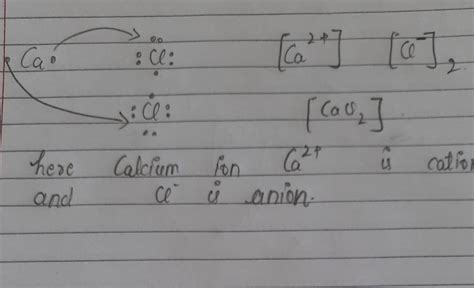 Ca Cl [Ca²⁺] [Cl⁻]₂
Cl [CaCl₂]
here Calcium ion Ca²⁺ is cation
and Cl⁻ is anion.